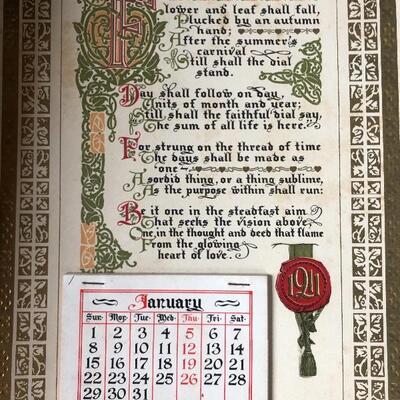 Flower and leaf shall fall,
Plucked by an autumn
hand;
After the summer's
carnival
Still shall the dial
stand.
Day shall follow on day,
Units of month and year;
Still shall the faithful dial say,
The sum of all life is here."
For strung on the thread of time
The days shall be made as
one-
A sordid thing, or a thing sublime,
As the purpose within shall run:
Be it one in the steadfast aim
That seeks the vision above,
One in the thought and deed that flame
From the glowing
heart of love.
1911
January
Sun. Mon. Tue. Wed. Thu. Fri. Sat.
1 2 3 4 5 6 7
8 9 10 11 12 13 14
15 16 17 18 19 20 21
22 23 24 25 26 27 28
29 30 31